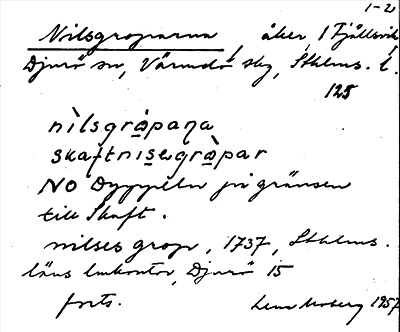 1-2
Nilsgroparna, åker, 1 Fjällsvik,
Djurö sn, Värmdö skg, Sthlms. l.
125
nìlsgrò̱paṉa
skaftnise̱grò̱par
NO Dyppeln på gränsen
till Skaft.
nilses grop, 1737, Sthlms.
läns lmkontor, Djurö 15
forts. Lena Moberg 1957